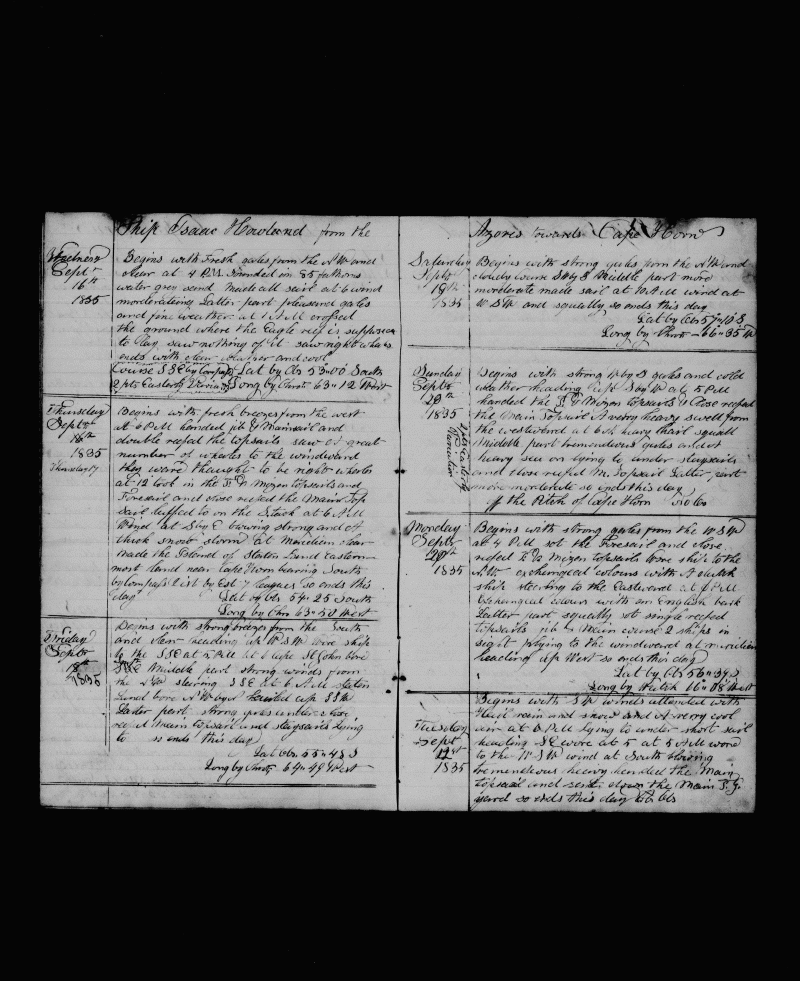 Ship Isaac Howland from the
Wednesd
Sept
16th
1835
Begins with Fresh gales from the NW and
clear at 4 PM Sounded in 85 fathoms
water grey sand Made all sail at 6 wind
moderating Latter part pleasand gales
and fine weather at 1 AM crossed
the ground where the Eagle reef is supposed
to lay saw nothing of it saw right whales
ends with clear weather and cool
Course SSE by Compass Lat by Obs 53"00 South
2 pts Easterly Long by Chrot 63"12 West
Thursday
Sept
1835
Thursday 17
Begins with fresh breezes from the west
at 6 PM handed jib & Mainsail and
double reefed the topsails saw A great
number of whales to the windward
they were thought to be right whales
at 12 took in the F & Mizen topsails and
Foresail and close reefed the Main Top
sail luffed to on the Stack at 6 AM
Wind at S by E blowing strong and A
thick snow storm at Meridian clear
Made the Island of Staten Land Eastern
most land near Cape Horn bearing South
by Compass dist by Est 7 leagues so ends this
day Lat by Obs 54"25 South
Long by Chr 63"50 West
Friday
Sept
18th
1835
Begins with strong breezes from the South
and clear heading up WSW wore ship
to the SSE at 5 PM at 6 Cape St John bore
SSE Middle part strong winds from
the NW stearing SSE at 6 AM Staten
Land bore NW by W hauled up SSW
Latter part strong gales under close
reefed Main topsail and staysails lying
to so ends this day
Lat Obs 55"48 S
Long by Chrot 64"49 West
Azores towards Cape Horn
Saturday
Sept
19th
1835
Begins with strong gales from the NW and
cloudy wore S by E Middle part more
moderate made sail at 10 AM wind at
WSW and squally so ends this day
Lat by Obs 57"10 S
Long by Chrot 66"35 W
Sunday
Sept
20th
1835
Begins with strong W by S gales and cold
weather heading up S by W at 5 PM
handed the F & Mizen topsails & Close reefed
the Main Topsail A very heavy swell from
the westward at 6 A heavy hail squall
Middle part tremendous gales and A
heavy sea on lying to under staysails
and close reefed M. Topsail Latter part
more moderate so ends this day
off the Pitch of Cape Horn No Obs
Monday
Sept
1835
Begins with strong gales from the WSW
at 4 PM set the Foresail and close
reefed F & Mizen topsails Wore ship to the
NW exchanged colours with A dutch
ship steering to the Eastward at PM
Exchanged colours with an English bark
Latter part squally set single reefed
topsails jib & Main course 2 ships in
sight plying to the windward at meridian
heading up West so ends this day
Lat by Obs 56"39 S
Long by 66"08 West
Tuesday
Sept
1835
Begins with SW winds attended with
Hail rain and snow and A very cool
air at PM lying to under short sail
heading SE wore at 5 at 5 AM wore
to the WSW wind at South blowing
tremendous heavy handed the Main
topsail and sent down the Main T. G
yard so ends this day No Obs